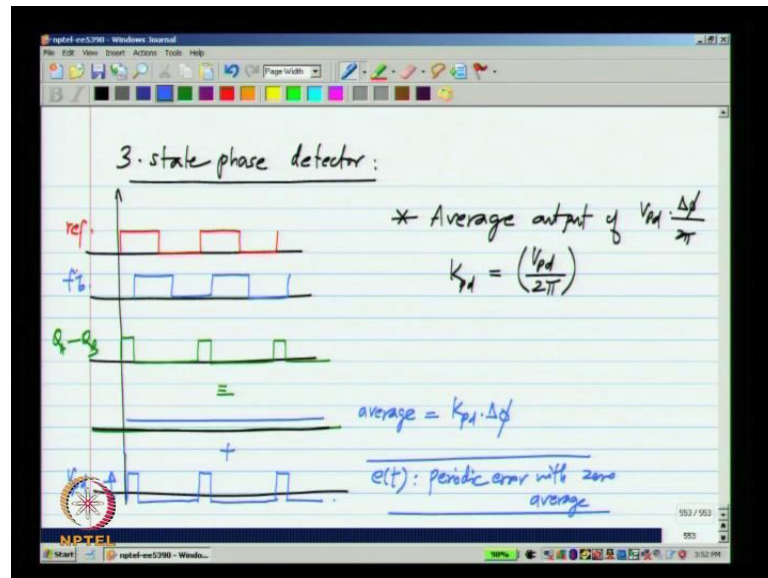 nptel-ee5390 - Windows Journal
File Edit View Insert Actions Tools Help
Page Width
B I
3-state phase detector:
ref.
fb
* Average output of Vpd · Δφ/2π
Kpd = (Vpd/2π)
QA - QB
=
average = Kpd · Δφ
+
Vpd
e(t): periodic error with zero
average
NPTEL
553 / 553
553
Start
nptel-ee5390 - Windo...
90%
3:52 PM